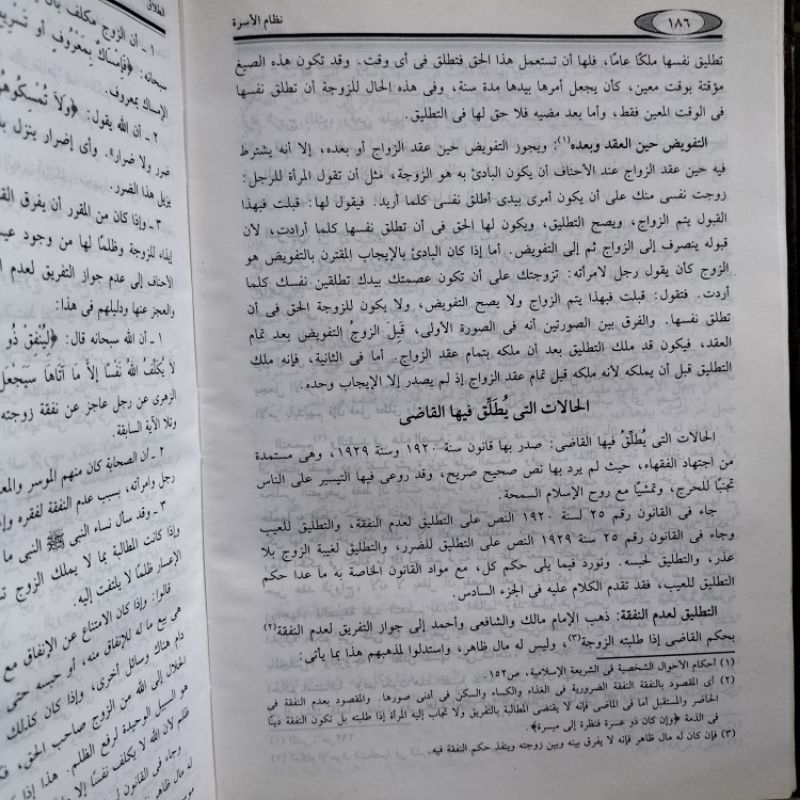 ١٨٦
نظام الأسرة
تطليق نفسها ملكًا عامًا، فلها أن تستعمل هذا الحق فتطلق فى أى وقت. وقد تكون هذه الصيغ
مؤقتة بوقت معين، كأن يجعل أمرها بيدها مدة سنة، وفى هذه الحال للزوجة أن تطلق نفسها
فى الوقت المعين فقط، وأما بعد مضيه فلا حق لها فى التطليق.
التفويض حين العقد وبعده(١): ويجوز التفويض حين عقد الزواج أو بعده، إلا أنه يشترط
فيه حين عقد الزواج عند الأحناف أن يكون البادئ به هو الزوجة، مثل أن تقول المرأة للرجل:
زوجت نفسى منك على أن يكون أمرى بيدى أطلق نفسى كلما أريد. فيقول لها: قبلت فبهذا
القبول يتم الزواج، ويصح التطليق، ويكون لها الحق فى أن تطلق نفسها كلما أرادت، لأن
قبوله ينصرف إلى الزواج ثم إلى التفويض. أما إذا كان البادئ بالإيجاب المقترن بالتفويض هو
الزوج كأن يقول رجل لامرأته: تزوجتك على أن تكون عصمتك بيدك تطلقين نفسك كلما
أردت. فتقول: قبلت فبهذا يتم الزواج ولا يصح التفويض، ولا يكون للزوجة الحق فى أن
تطلق نفسها. والفرق بين الصورتين أنه فى الصورة الأولى، قَبِلَ الزوجُ التفويض بعد تمام
العقد، فيكون قد ملك التطليق بعد أن ملكه بتمام عقد الزواج. أما فى الثانية، فإنه ملك
التطليق قبل أن يملكه لأنه ملكه قبل تمام عقد الزواج إذ لم يصدر إلا الإيجاب وحده.
الحالات التى يُطَلِّق فيها القاضى
الحالات التى يُطَلِّقُ فيها القاضى: صدر بها قانون سنة ١٩٢٠ وسنة ١٩٢٩، وهى مستمدة
من اجتهاد الفقهاء، حيث لم يرد بها نص صحيح صريح، وقد روعى فيها التيسير على الناس
تجنبًا للحرج، وتمشيًا مع روح الإسلام السمحة.
جاء فى القانون رقم ٢٥ لسنة ١٩٢٠ النص على التطليق لعدم النفقة، والتطليق للعيب
وجاء فى القانون رقم ٢٥ سنة ١٩٢٩ النص على التطليق للضرر، والتطليق لغيبة الزوج بلا
عذر، والتطليق لحبسه. ونورد فيما يلى حكم كل، مع مواد القانون الخاصة به ما عدا حكم
التطليق للعيب، فقد تقدم الكلام عليه فى الجزء السادس.
التطليق لعدم النفقة: ذهب الإمام مالك والشافعى وأحمد إلى جواز التفريق لعدم النفقة(٢)
بحكم القاضى إذا طلبته الزوجة(٣)، وليس له مال ظاهر، واستدلوا لمذهبهم هذا بما يأتى:
(١) أحكام الأحوال الشخصية فى الشريعة الإسلامية، ص١٥٢.
(٢) أى المقصود بالنفقة النفقة الضرورية فى الغذاء والكساء والسكن فى أدنى صورها. والمقصود بعدم النفقة فى
الحاضر والمستقبل أما فى الماضى فإنه لا يقتضى المطالبة بالتفريق ولا تجاب إليه المرأة إذا طلبته بل تكون النفقة دينًا
فى الذمة ﴿وإن كان ذو عسرة فنظرة إلى ميسرة﴾.
(٣) فإن كان له مال ظاهر فإنه لا يفرق بينه وبين زوجته وينفذ حكم النفقة فيه.
الطلاق
١ ـ أن الزوج مكلف بأن
سبحانه: ﴿فَإِمْسَاكٌ بِمَعْرُوفٍ أو تَسْرِيح
الإمساك بمعروف.
٢ ـ أن الله يقول: ﴿ولا تُمْسِكُوهُ
ضرر ولا ضرار». وأى إضرار ينزل با
يزيل هذا الضرر.
٣ ـ وإذا كان من المقرر أن يفرق الق
إيذاء للزوجة وظلمًا لها من وجود عيب
الأحناف إلى عدم جواز التفريق لعدم ا
والعجز عنها ودليلهم فى هذا:
١ ـ أن الله سبحانه قال: ﴿لِيُنْفِقْ ذُو
لا يُكَلِّفُ اللهُ نَفْسًا إلاَّ مَا آتَاهَا سَيَجْعَل
الزهرى عن رجل عاجز عن نفقة زوجته
وتلا الآية السابقة.
٢ ـ أن الصحابة كان منهم الموسر والمع
رجل وامرأته، بسبب عدم النفقة لفقره وإ
٣ ـ وقد سأل نساء النبى ﷺ النبى ما
وإذا كانت المطالبة بما لا يملك الزوج
الإعسار ظلمًا لا يلتفت إليه.
قالوا: وإذا كان الامتناع عن الإنفاق مع
هى بيع ما له للإنفاق منه، أو حبسه حتى
دام هناك وسائل أخرى، وإذا كان كذلك
الحلال إلى الله من الزوج صاحب الحق، فك
هو السبيل الوحيدة لرفع الظلم. هذا إذا ك
ظلم لأن الله لا يكلف نفسًا إلا
وجاء فى القانون
له مال ظاهر